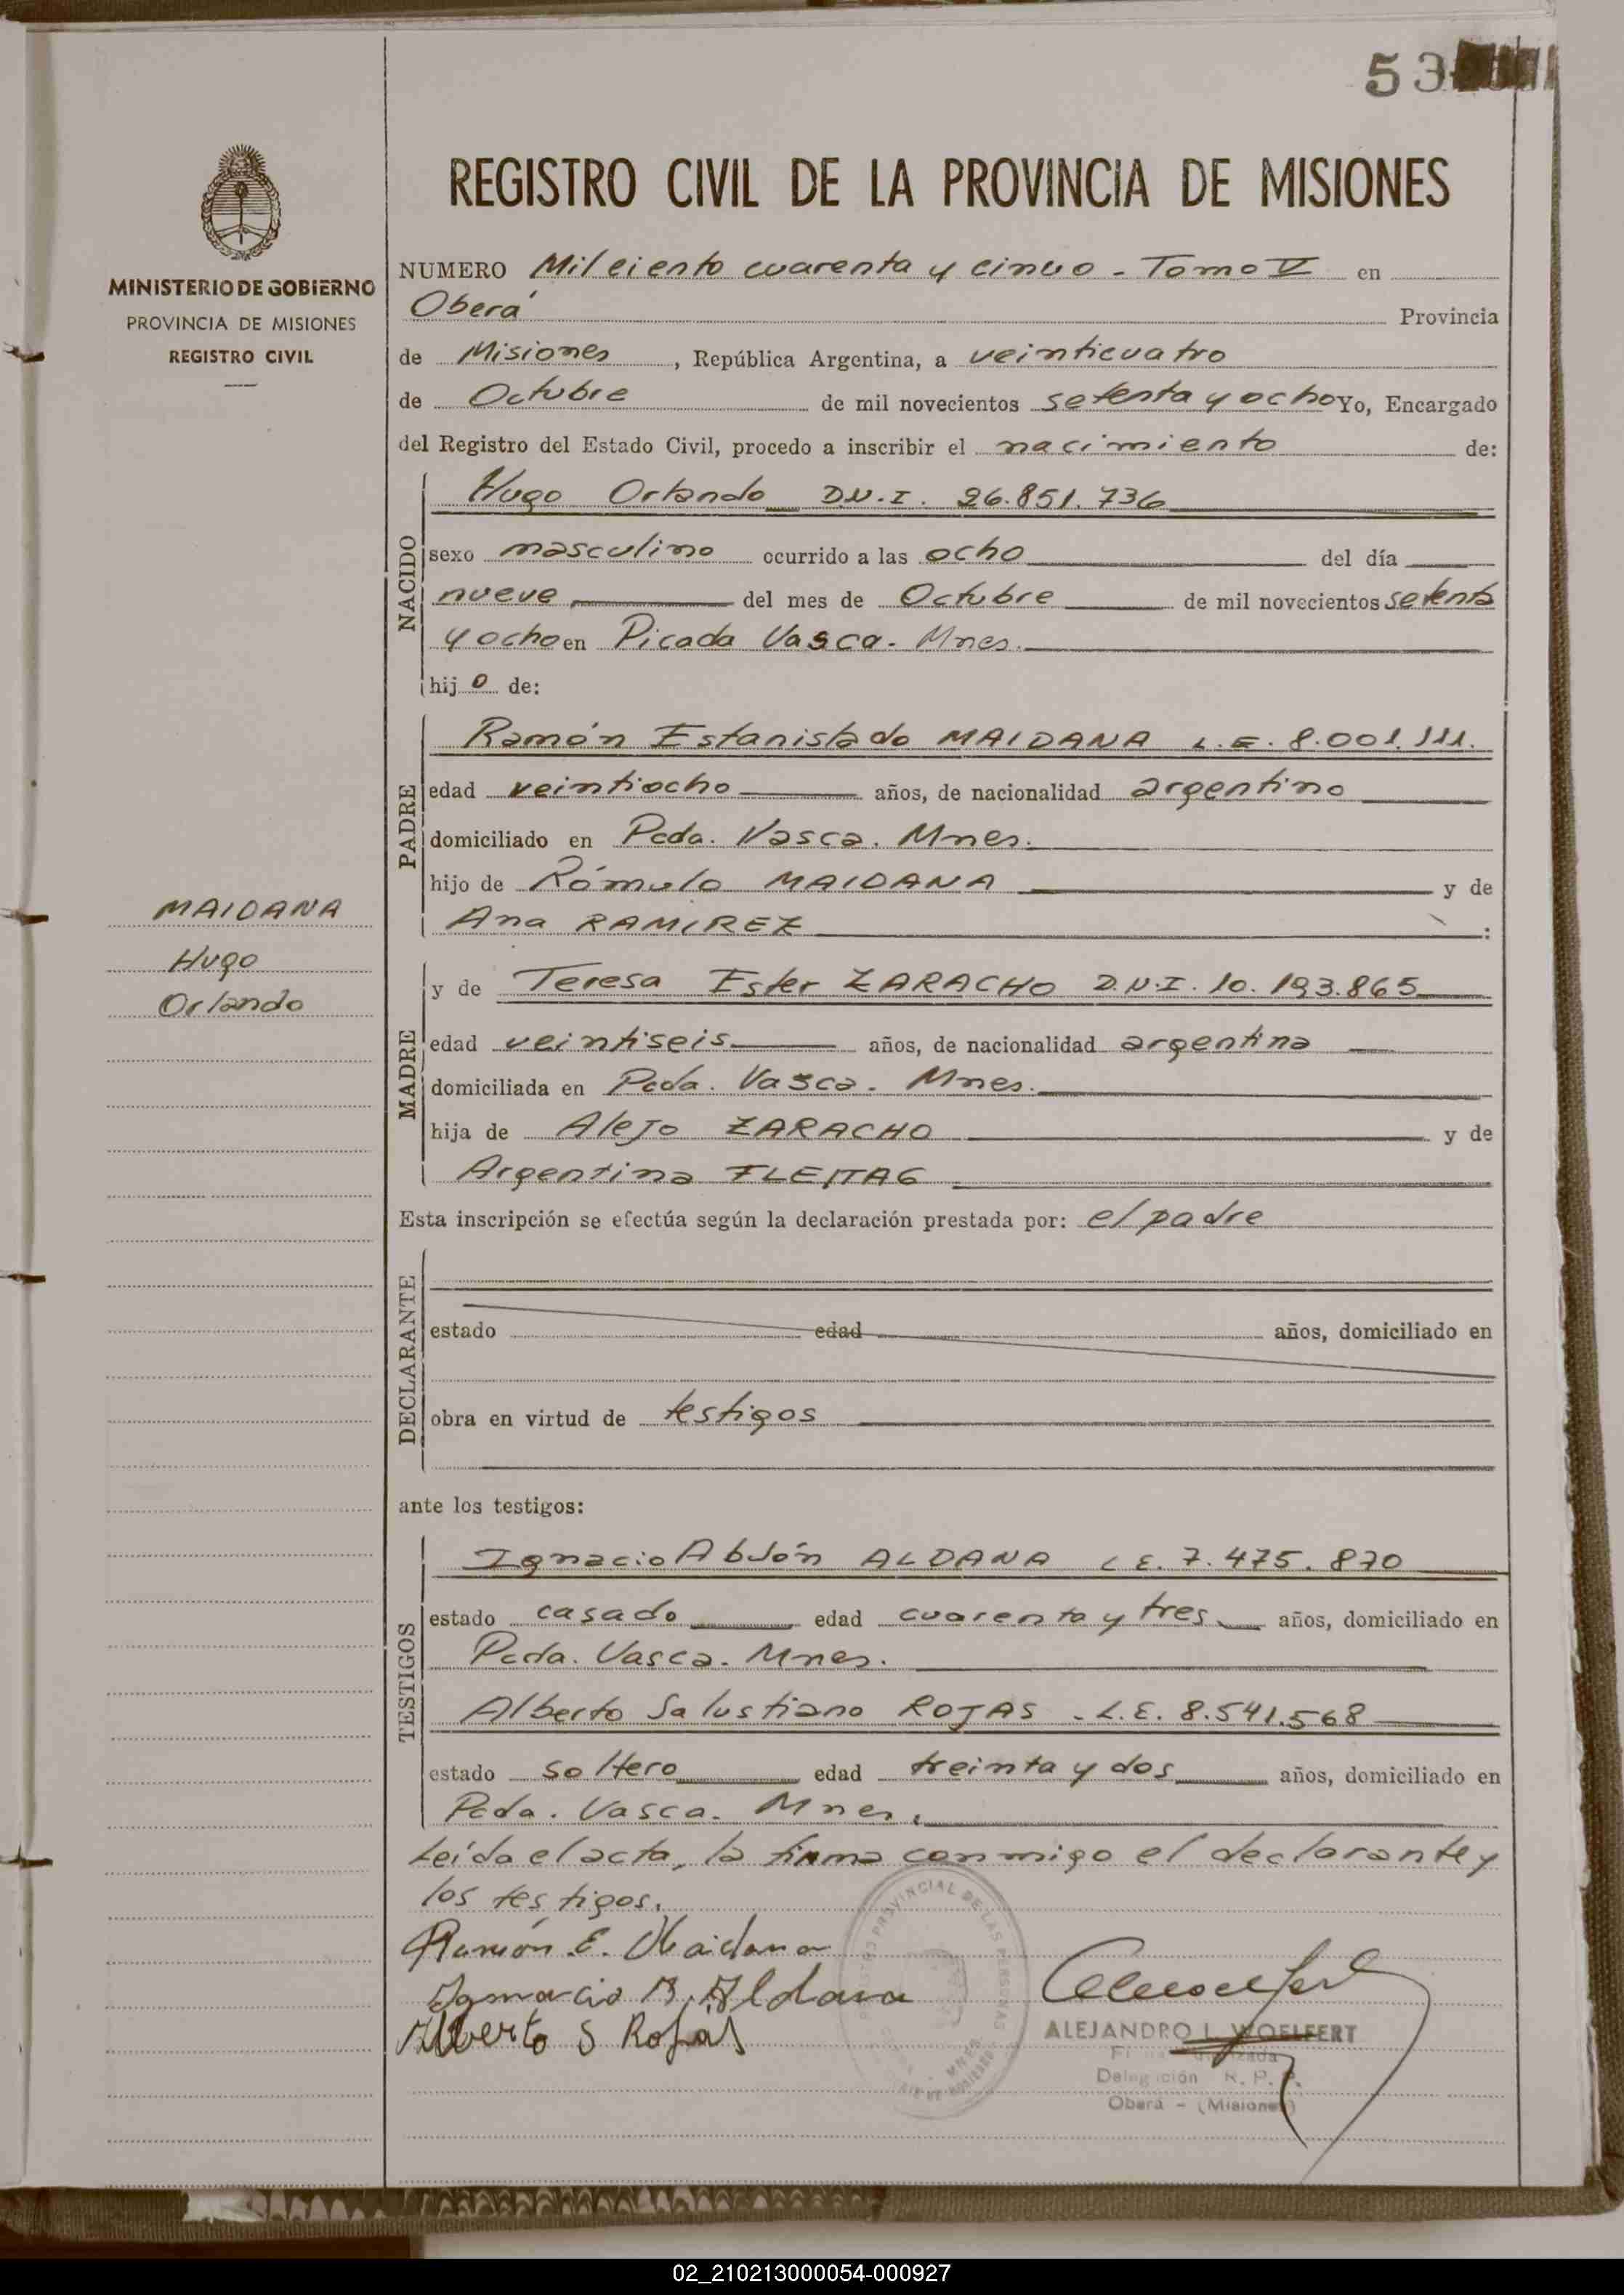 53
REGISTRO CIVIL DE LA PROVINCIA DE MISIONES
MINISTERIO DE GOBIERNO
PROVINCIA DE MISIONES
REGISTRO CIVIL
NUMERO Mil ciento cuarenta y cinco - Tomo V en
Oberá Provincia
de Misiones, República Argentina, a veinticuatro
de Octubre de mil novecientos setenta y ocho Yo, Encargado
del Registro del Estado Civil, procedo a inscribir el nacimiento de:
NACIDO
Hugo Orlando D.N.I. 26.851.736
sexo masculino ocurrido a las ocho del día
nueve del mes de Octubre de mil novecientos setenta
y ocho en Picada Vasca. Mnes.
hijo de:
PADRE
Ramón Estanislado MAIDANA L.E. 8.001.111.
edad veintiocho años, de nacionalidad argentino
domiciliado en Pcda. Vasca. Mnes.
hijo de Rómulo MAIDANA y de
Ana RAMIREZ :
MAIDANA
Hugo
Orlando
MADRE
y de Teresa Ester ZARACHO D.N.I. 10.193.865
edad veintiseis años, de nacionalidad argentina
domiciliada en Pcda. Vasca. Mnes.
hija de Alejo ZARACHO y de
Argentina FLEITAS
Esta inscripción se efectúa según la declaración prestada por: el padre
DECLARANTE
estado edad años, domiciliado en
obra en virtud de testigos
ante los testigos:
TESTIGOS
Ignacio Abdón ALDANA L.E. 7.475.870
estado casado edad cuarenta y tres años, domiciliado en
Pcda. Vasca. Mnes.
Alberto Salustiano ROJAS - L.E. 8.541.568
estado soltero edad treinta y dos años, domiciliado en
Pcda. Vasca. Mnes.
Leída el acta, la firma conmigo el declarante y
los testigos.
Ramón E. Maidana
Ignacio A. Aldana
Alberto S Rojas
PROVINCIAL DE LAS PERSONAS
ALEJANDRO L. WOELFERT
Delegación R. P. P.
Oberá - (Misiones)
02_210213000054-000927